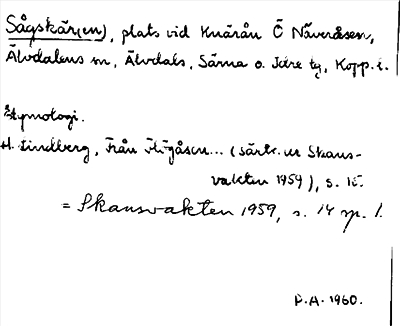 Sågskär(en), plats vid Knärån Ö Näveråsen,
Älvdalens sn, Älvdals, Särna o. Idre tg, Kopp. l.
Etymologi.
H. Lindberg, Från ... (särtr. ur Skans-
vakten 1959), s. 15.
= Skansvakten 1959, s. 14 sp. 1.
P.A. 1960.